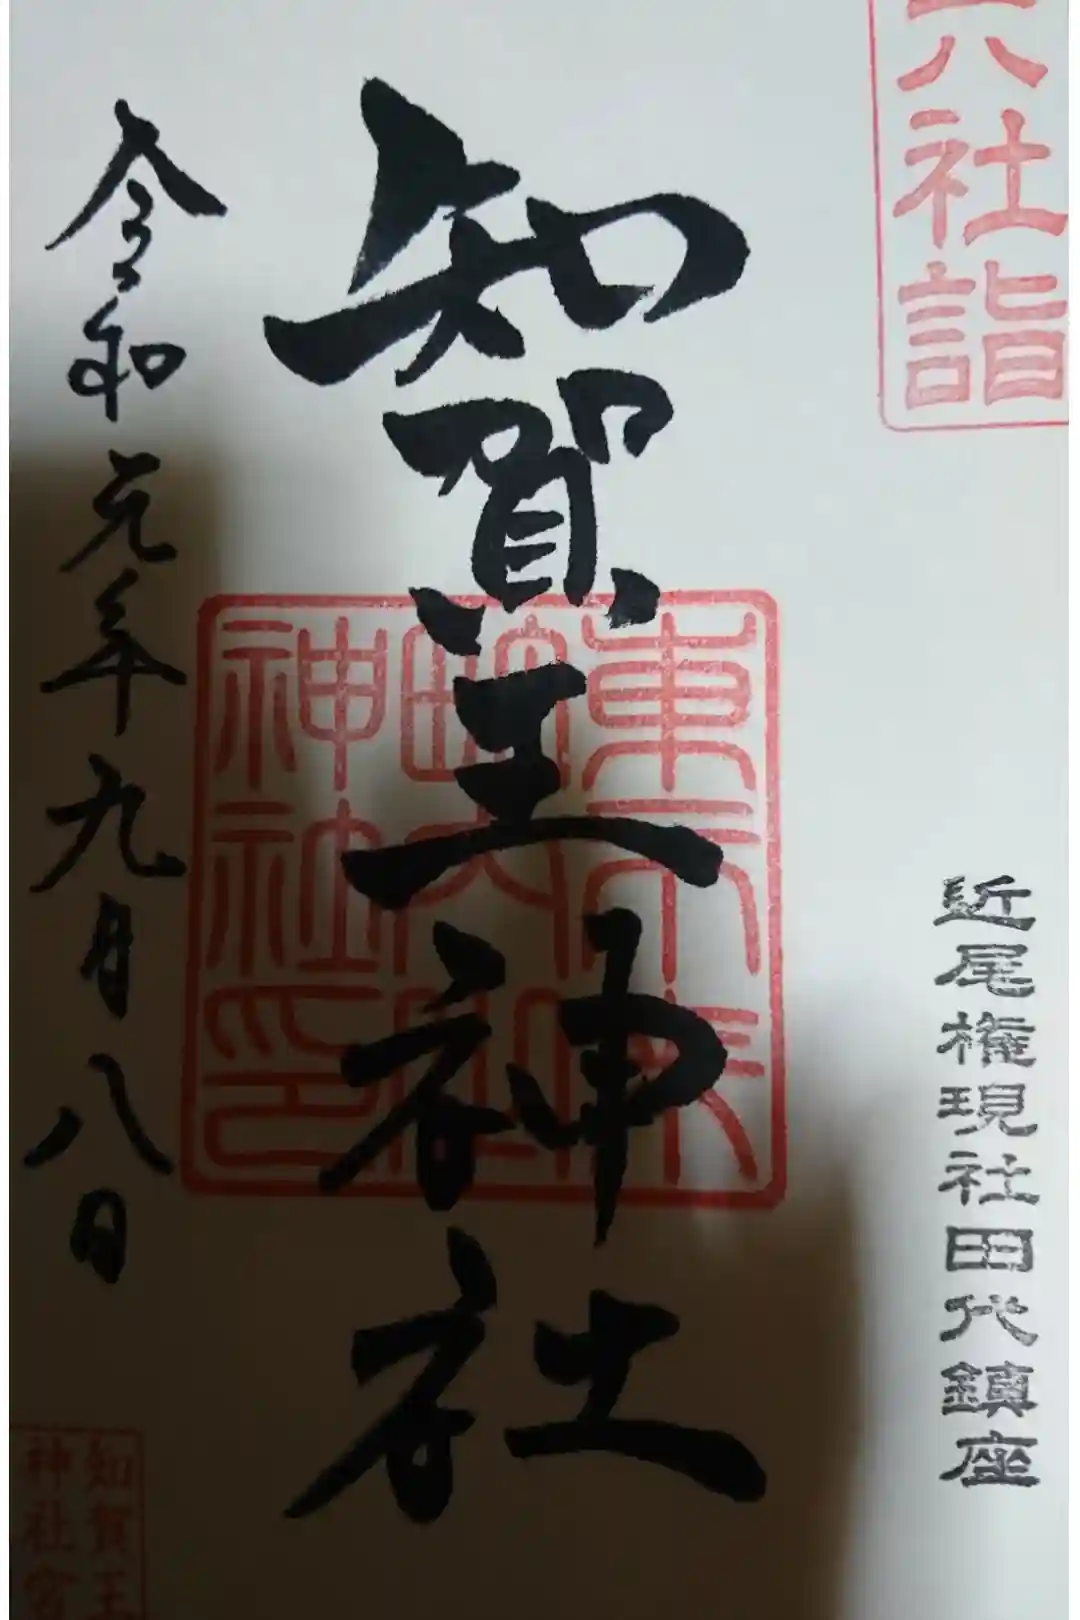 社詣
近尾権現社田代鎮座
知賀王神社
神社印
令和元年九月八日
知賀王
神社宮